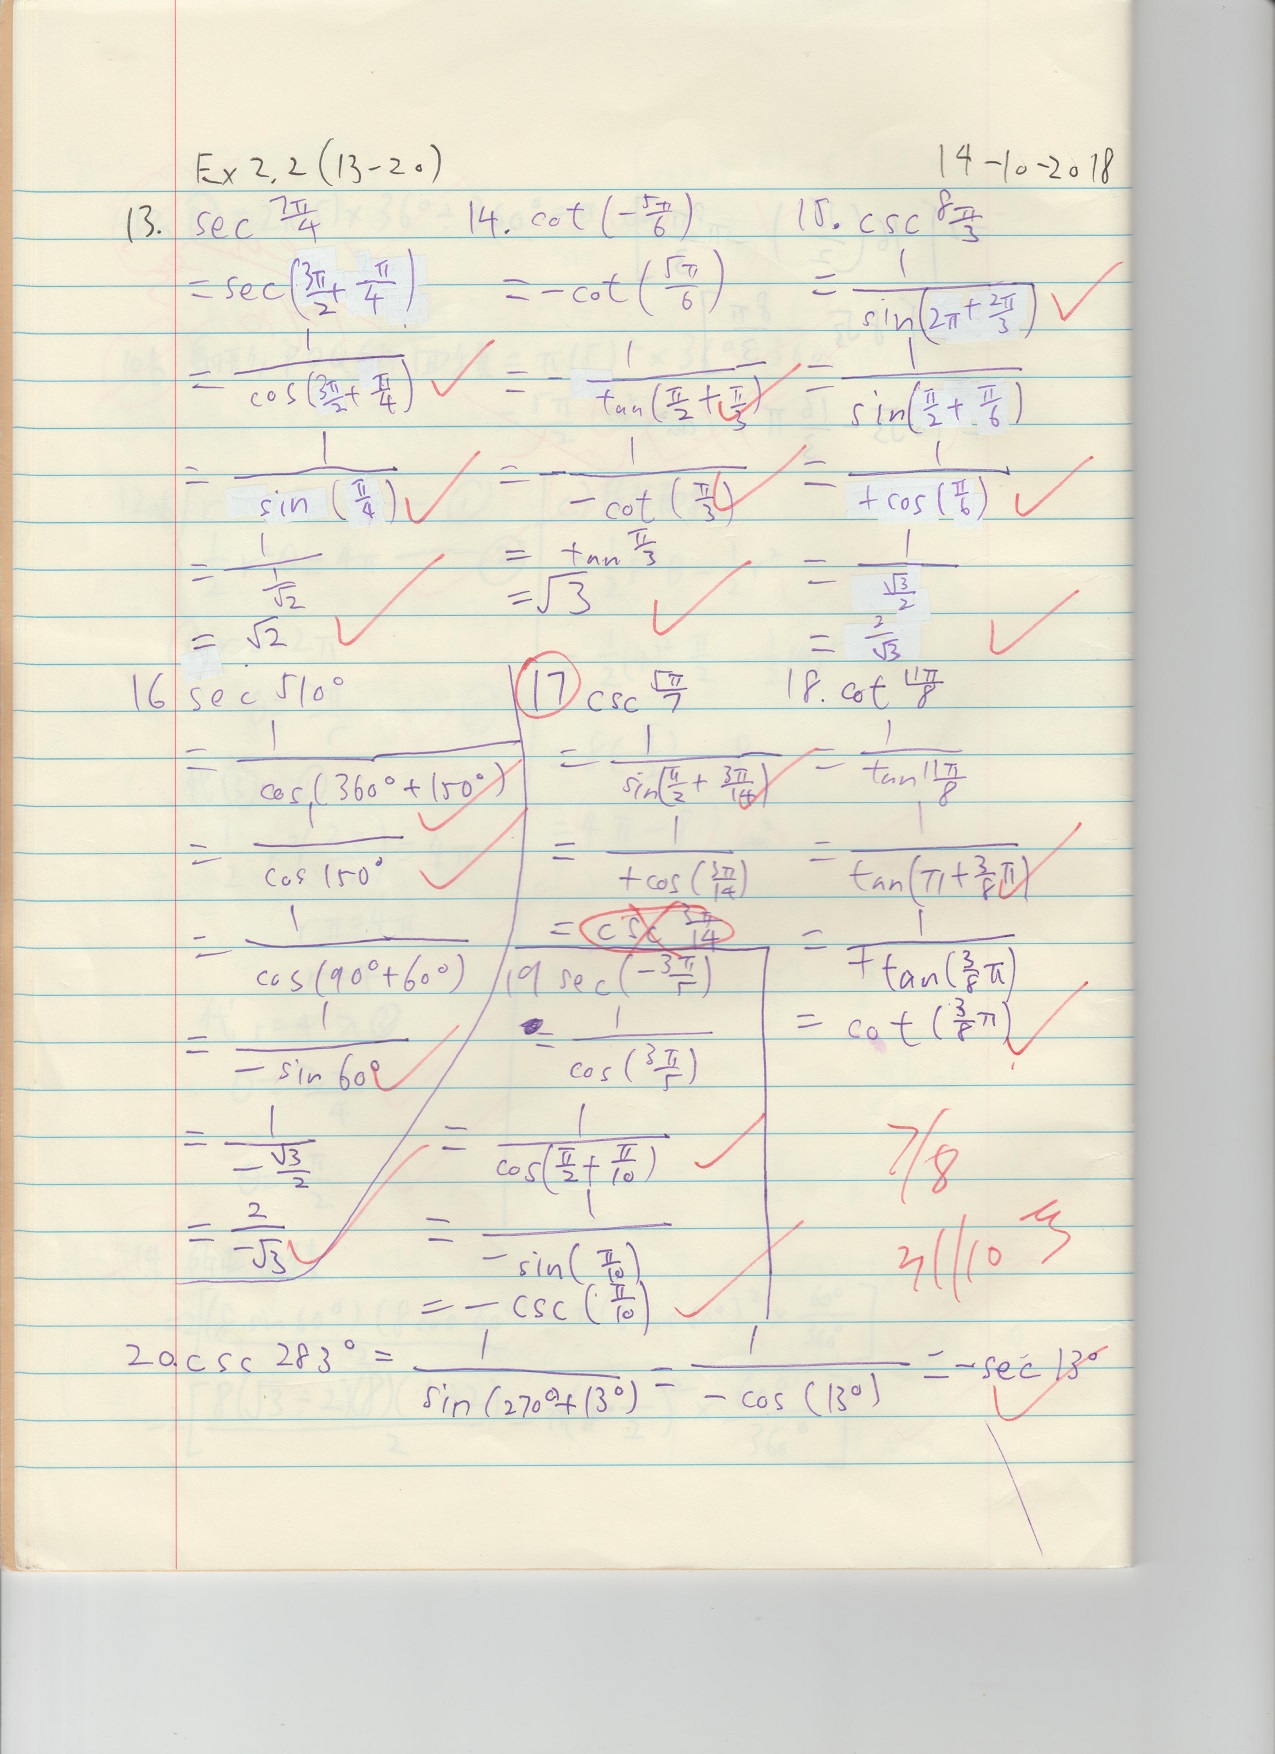 Ex 2.2 (13-20) 14-10-2018
13. sec 7π/4
= sec(3π/2 + π/4)
= 1/cos(3π/2 + π/4)
= 1/sin(π/4)
= 1/(1/√2)
= √2
14. cot(-5π/6)
= -cot(5π/6)
= -1/tan(π/2 + π/3)
= -1/-cot(π/3)
= tan π/3
= √3
15. csc 8π/3
= 1/sin(2π + 2π/3)
= 1/sin(π/2 + π/6)
= 1/+cos(π/6)
= 1/(√3/2)
= 2/√3
16 sec 510°
= 1/cos(360° + 150°)
= 1/cos 150°
= 1/cos(90° + 60°)
= 1/-sin 60°
= 1/-√3/2
= 2/-√3
17 csc 5π/7
= 1/sin(π/2 + 3π/14)
= 1/+cos(3π/14)
= csc 3π/14
18. cot 11π/8
= 1/tan 11π/8
= 1/tan(π + 3/8 π)
= 1/+tan(3/8 π)
= cot(3/8 π)
19 sec(-3π/5)
= 1/cos(3π/5)
= 1/cos(π/2 + π/10)
= 1/-sin(π/10)
= -csc(π/10)
7/8
20. csc 283° = 1/sin(270° + 13°) = 1/-cos(13°) = -sec 13°